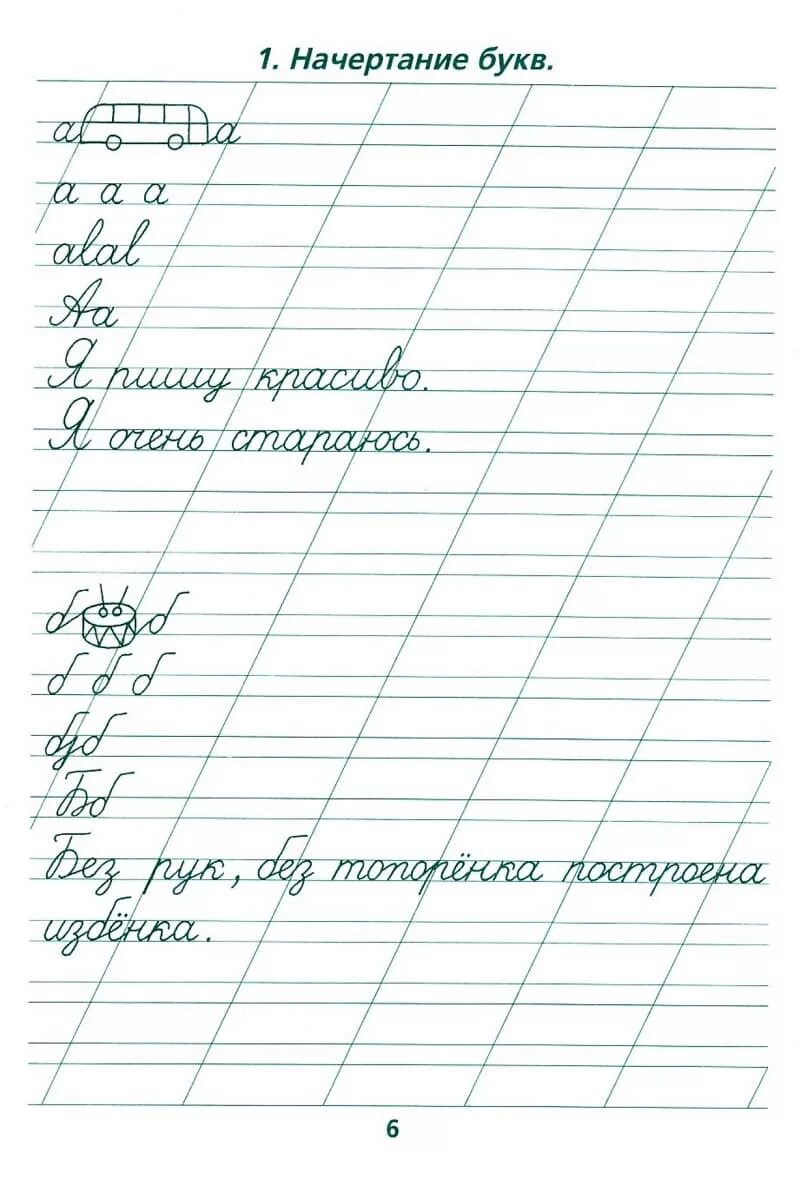 1. Начертание букв.
а а
а а а
alal
Аа
Я пишу красиво.
Я очень стараюсь.
б б
б б б
бзб
Бб
Без рук, без топорёнка построена
избёнка.
6